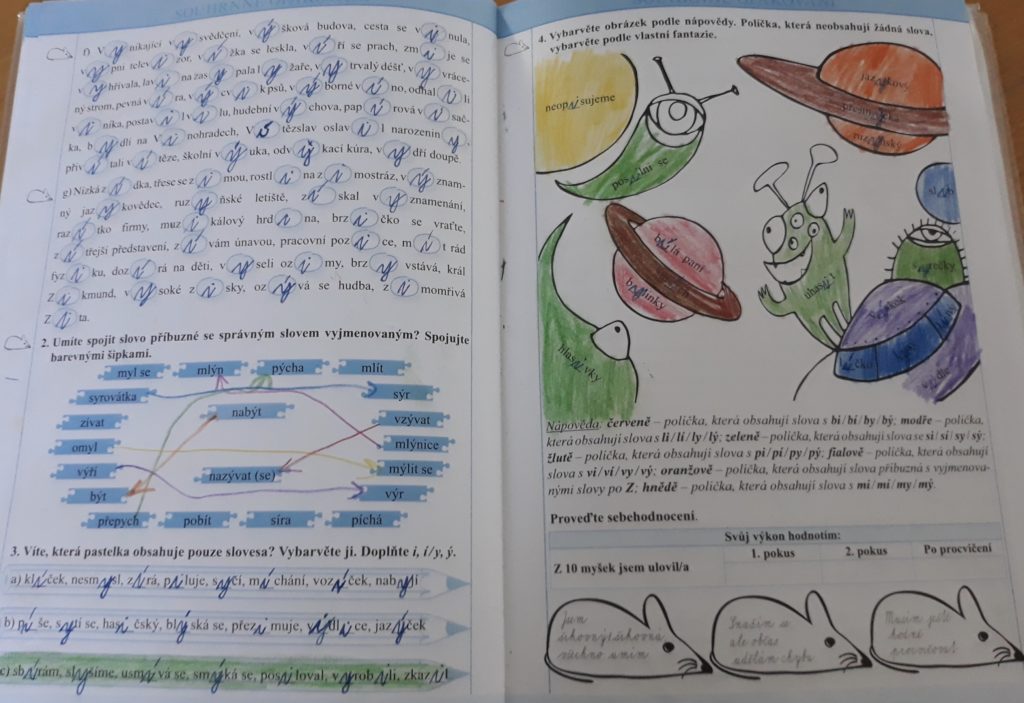 f) Vynikající vysvědčení, výšková budova, cesta se vinula,
vypni televizor, vížka se leskla, víří se prach, zmije se
vyhřívala, lavina zasypala lyžaře, vytrvalý déšť, vyvráce-
ný strom, pevná víra, výcvik psů, výborné víno, odhalili
viníka, postavil vilu, hudební výchova, papírová sač-
ka, bydlí na Vinohradech, Vítězslav oslavil narozeniny,
přivítali vítěze, školní výuka, odvykací kúra, vydří doupě.
g) Nízká zídka, třese se zimou, rostliina z mostráz, význam-
ný jazykovědec, ruzyňské letiště, získal vyznamenání,
razítko firmy, muzikálový hrdina, brzičko se vraťte,
zítřejší představení, zívám únavou, pracovní pozice, mít rád
fyziku, dozírá na děti, veselí ozimy, brzy vstává, král
Zikmund, vysoké zisky, ozývá se hudba, zimomřivá
Zita.
2. Umíte spojit slovo příbuzné se správným slovem vyjmenovaným? Spojujte
barevnými šipkami.
myl se mlýn pýcha mlít
syrovátka sýr
zívat nabýt vzývat
omyl mlýnice
výři nazývat (se) mýlit se
být výr
přepych pobít síra píchá
3. Víte, která pastelka obsahuje pouze slovesa? Vybarvěte ji. Doplňte i, í/y, ý.
a) klíček, nesmysl, zírá, piluje, syčí, míchání, vozíček, nabyl
b) píše, sytí se, hasičský, blýská se, přezimuje, výdlice, jazýček
c) sbírám, slyšíme, usmívá se, smýká se, posiloval, vyrobili, zkazil
4. Vybarvěte obrázek podle nápovědy. Políčka, která neobsahují žádná slova,
vybarvěte podle vlastní fantazie.
neopisujeme
posílní se
jazykový
nizozemský
bílá paní
bylinky
hlasivky
Nápověda: červeně – políčka, která obsahují slova s bi/bí/by/bý; modře – políčka,
která obsahují slova s li/lí/ly/lý; zeleně – políčka, která obsahují slova se si/sí/sy/sý;
žlutě – políčka, která obsahují slova s pi/pí/py/pý; fialově – políčka, která obsahují
slova s vi/ví/vy/vý; oranžově – políčka, která obsahují slova příbuzná s vyjmenova-
nými slovy po Z; hnědě – políčka, která obsahují slova s mi/mí/my/mý.
Proveďte sebehodnocení.
Svůj výkon hodnotím:
1. pokus 2. pokus Po procvičení
Z 10 myšek jsem ulovil/a
Jsem
šikovný/šikovná
všechno umím
Snažím se
ale občas
udělám chybu
Musím ještě
hodně
procvičovat